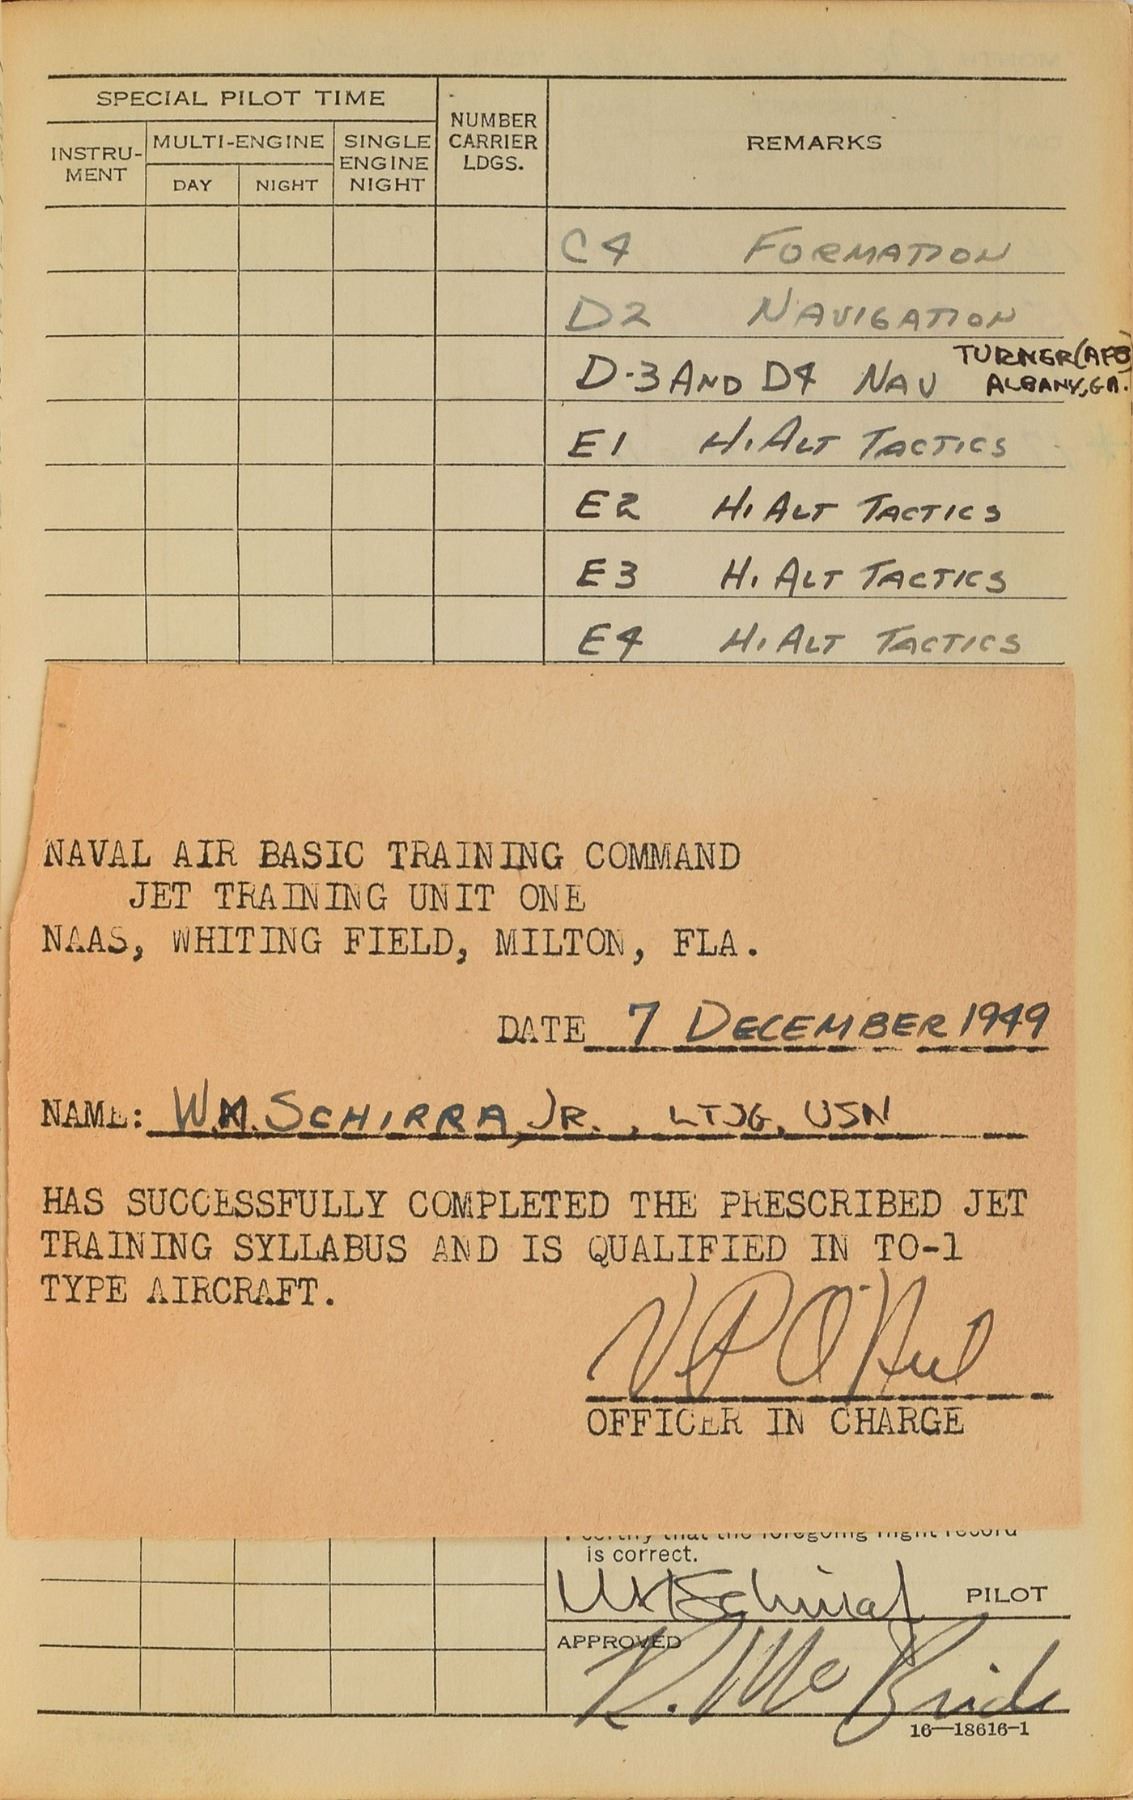 SPECIAL PILOT TIME
INSTRU-
MENT
MULTI-ENGINE
DAY
NIGHT
SINGLE
ENGINE
NIGHT
NUMBER
CARRIER
LDGS.
REMARKS
C4 FORMATION
D2 NAVIGATION
D-3 AND D4 NAV TURNER (AFB)
ALBANY, GA.
E1 HI ALT TACTICS
E2 HI ALT TACTICS
E3 HI ALT TACTICS
E4 HI ALT TACTICS
NAVAL AIR BASIC TRAINING COMMAND
JET TRAINING UNIT ONE
NAAS, WHITING FIELD, MILTON, FLA.
DATE 7 DECEMBER 1949
NAME: WM. SCHIRRA, JR., LTJG, USN
HAS SUCCESSFULLY COMPLETED THE PRESCRIBED JET
TRAINING SYLLABUS AND IS QUALIFIED IN TO-1
TYPE AIRCRAFT.
V P O'Neil
OFFICER IN CHARGE
I certify that the foregoing flight record
is correct.
WM Schirra Jr PILOT
APPROVED
R. McBride
16—18616-1